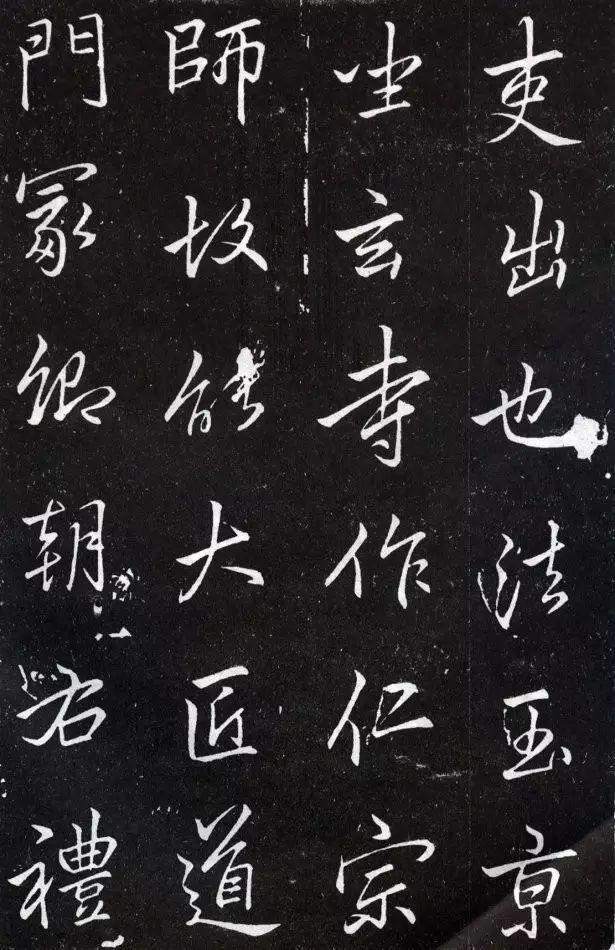 吏出也法玉京
坐玄寺作仁宗
師故能大匠道
門冢卿朝右禮